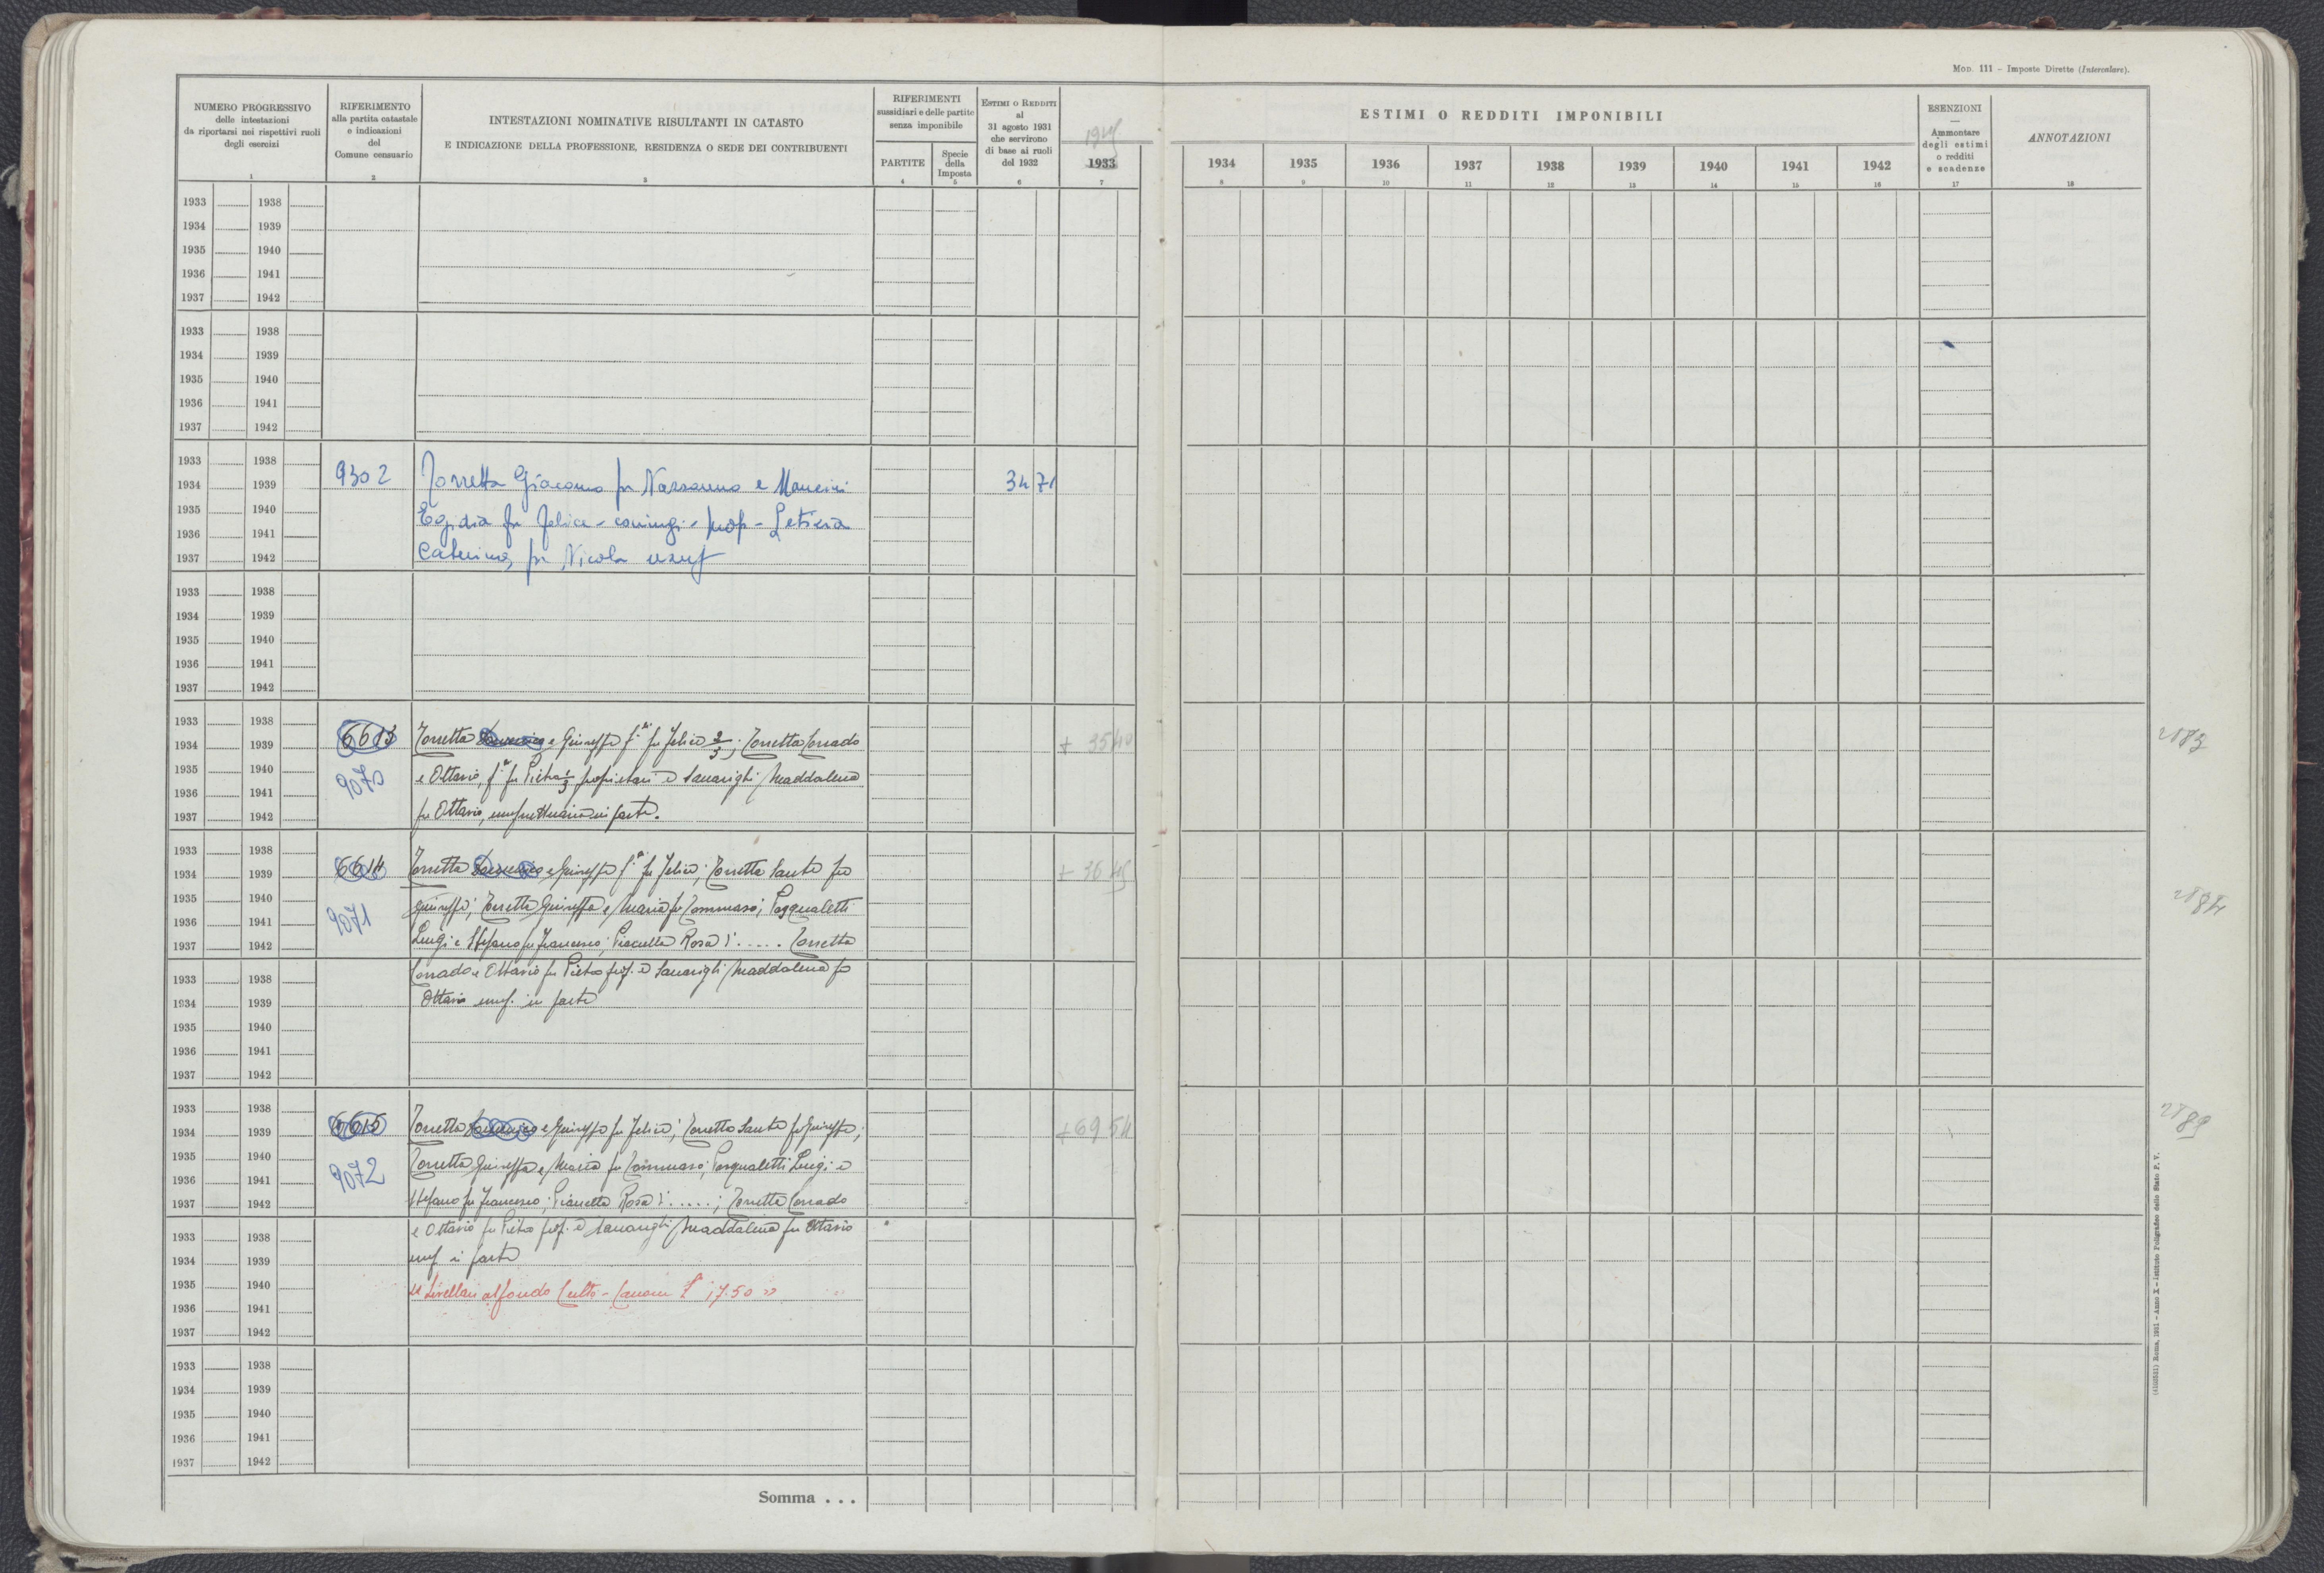 MOD. 111 – Imposte Dirette (Intercalare).
NUMERO PROGRESSIVO
delle intestazioni
da riportarsi nei rispettivi ruoli
degli esercizi
1
RIFERIMENTO
alla partita catastale
e indicazioni
del
Comune censuario
2
INTESTAZIONI NOMINATIVE RISULTANTI IN CATASTO
E INDICAZIONE DELLA PROFESSIONE, RESIDENZA O SEDE DEI CONTRIBUENTI
3
RIFERIMENTI
sussidiari e delle partite
senza imponibile
PARTITE
4
Specie
della
Imposta
5
ESTIMI O REDDITI
al
31 agosto 1931
che servirono
di base ai ruoli
del 1932
6
1933
7
ESTIMI O REDDITI IMPONIBILI
1934 1935 1936 1937 1938 1939 1940 1941 1942
8 9 10 11 12 13 14 15 16
ESENZIONI
—
Ammontare
degli estimi
o redditi
e scadenze
17
ANNOTAZIONI
18
1933 1938
1934 1939
1935 1940
1936 1941
1937 1942
1933 1938
1934 1939
1935 1940
1936 1941
1937 1942
1933 1938
1934 1939
1935 1940
1936 1941
1937 1942
9302
Torretta Giacomo fu Nazzareno e Mancini
Egidia fu Felice - coniugi - prop - Letizia
Caterina fu Nicola usuf
34 71
1933 1938
1934 1939
1935 1940
1936 1941
1937 1942
1933 1938
1934 1939
1935 1940
1936 1941
1937 1942
6613
9070
Torretta Domenico e Giuseppe f.lli fu Felice 2/3; Torretta Corrado
e Ottavio, f.lli fu Pietro 1/3 proprietari e Maddalena
fu Ottavio, usufruttuaria in parte.
+ 35 40
1933 1938
1934 1939
1935 1940
1936 1941
1937 1942
6614
9071
Torretta Domenico e Giuseppe f.lli fu Felice; Torretta Santo fu
Giuseppe; Torretta Giuseppa e Maria fu Tommaso; Pasqualetti
Luigi e Stefano fu Francesco; Rosa di ..... Torretta
+ 36 45
1933 1938
1934 1939
1935 1940
1936 1941
1937 1942
Corrado e Ottavio fu Pietro prop. e Maddalena fu
Ottavio usuf. in parte
1933 1938
1934 1939
1935 1940
1936 1941
1937 1942
6615
9072
Torretta Domenico e Giuseppe fu Felice; Torretta Santo fu Giuseppe;
Torretta Giuseppa e Maria fu Tommaso; Pasqualetti Luigi e
Stefano fu Francesco; Rosa di .....; Torretta Corrado
+ 69 54
1933 1938
1934 1939
1935 1940
1936 1941
1937 1942
e Ottavio fu Pietro prop. e Maddalena fu Ottavio
usuf in parte
Livellari al fondo Culto - Canone L 17.50 "
1933 1938
1934 1939
1935 1940
1936 1941
1937 1942
Somma . . .
Roma, 1931 – Anno X – Istituto Poligrafico dello Stato P. V.